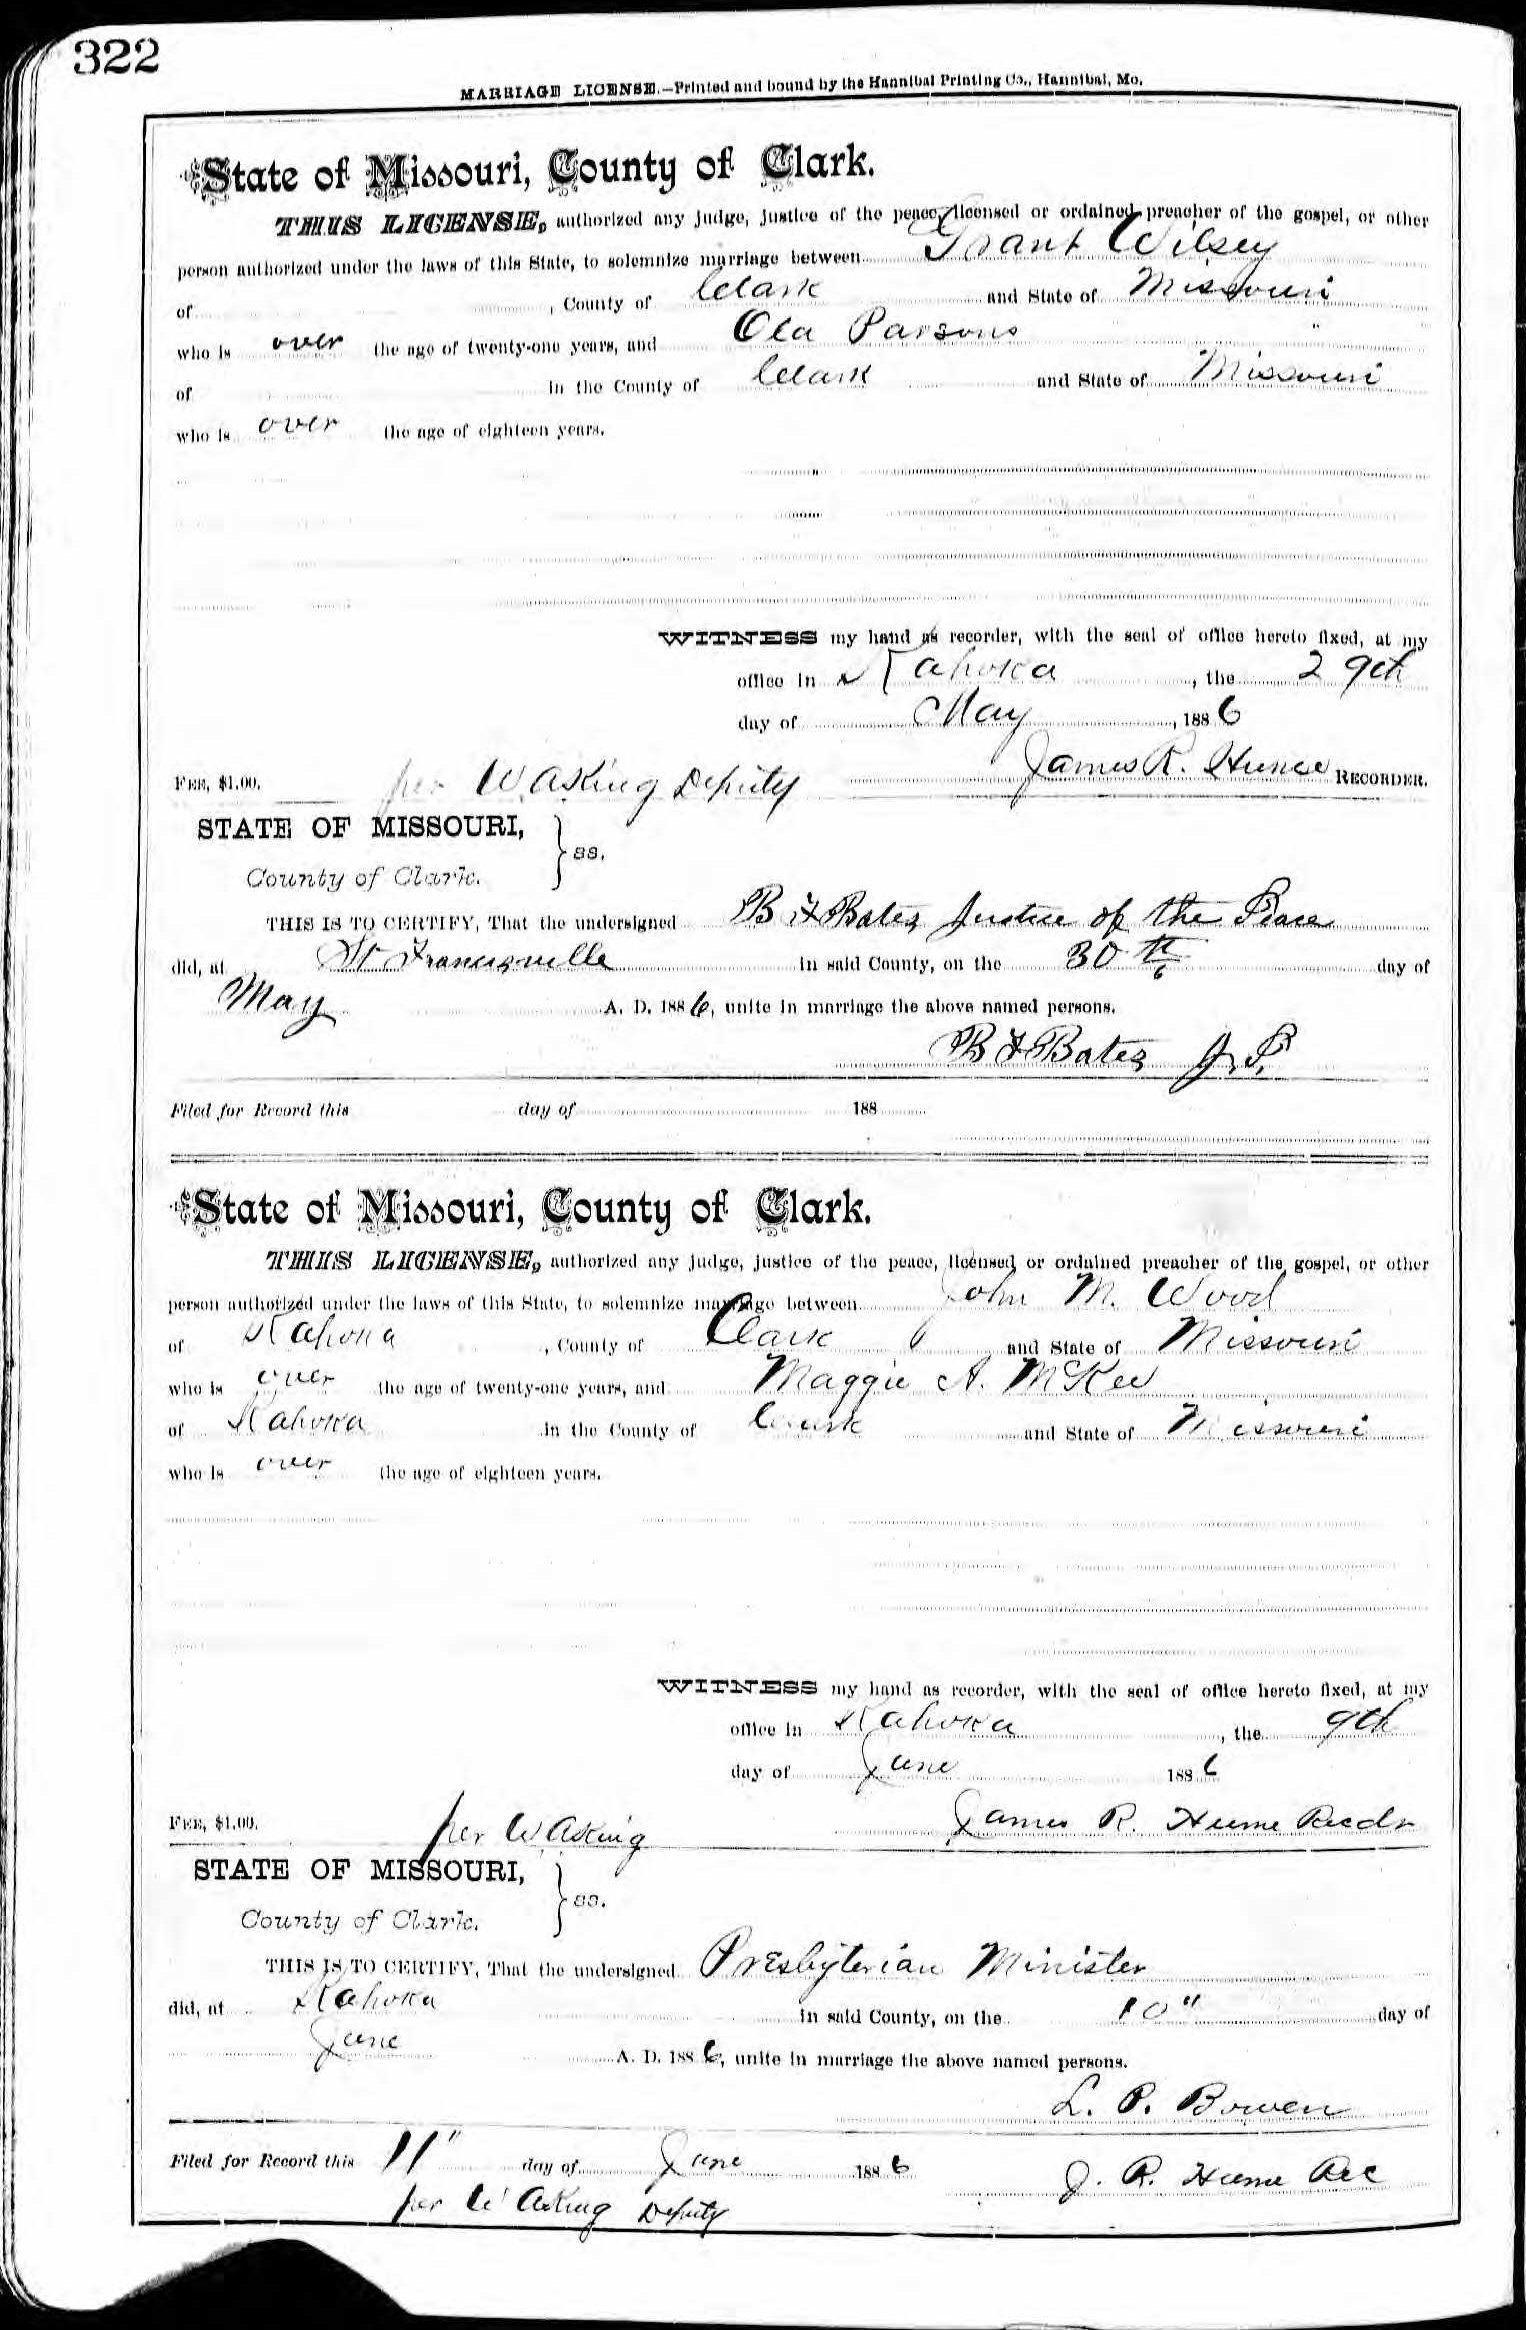 322
MARRIAGE LICENSE.—Printed and bound by the Hannibal Printing Co., Hannibal, Mo.
State of Missouri, County of Clark.
THIS LICENSE, authorized any judge, justice of the peace, licensed or ordained preacher of the gospel, or other
person authorized under the laws of this State, to solemnize marriage between Grant Wilsey
of , County of Clark and State of Missouri
who is over the age of twenty-one years, and Ola Parsons "
of in the County of Clark and State of Missouri
who is over the age of eighteen years.
WITNESS my hand as recorder, with the seal of office hereto fixed, at my
office in Kahoka , the 29th
day of May , 1886
FEE, $1.00. per W. A. King Deputy James R. Hume RECORDER.
STATE OF MISSOURI,
County of Clark. } ss.
THIS IS TO CERTIFY, That the undersigned B F Bates Justice of the Peace
did, at St Francisville in said County, on the 30th day of
May A. D. 1886, unite in marriage the above named persons.
B F Bates J. P.
Filed for Record this day of 188
State of Missouri, County of Clark.
THIS LICENSE, authorized any judge, justice of the peace, licensed or ordained preacher of the gospel, or other
person authorized under the laws of this State, to solemnize marriage between John M. Wood
of Kahoka , County of Clark and State of Missouri
who is over the age of twenty-one years, and Maggie A. McKee
of Kahoka in the County of Clark and State of Missouri
who is over the age of eighteen years.
WITNESS my hand as recorder, with the seal of office hereto fixed, at my
office in Kahoka , the 9th
day of June 1886
FEE, $1.00. per W A King James R. Hume Recdr
STATE OF MISSOURI,
County of Clark. } ss.
THIS IS TO CERTIFY, That the undersigned Presbyterian Minister
did, at Kahoka in said County, on the 10" day of
June A. D. 1886, unite in marriage the above named persons.
L. P. Bowen
Filed for Record this 11" day of June 1886 J. R. Hume Rec
per W A King Deputy